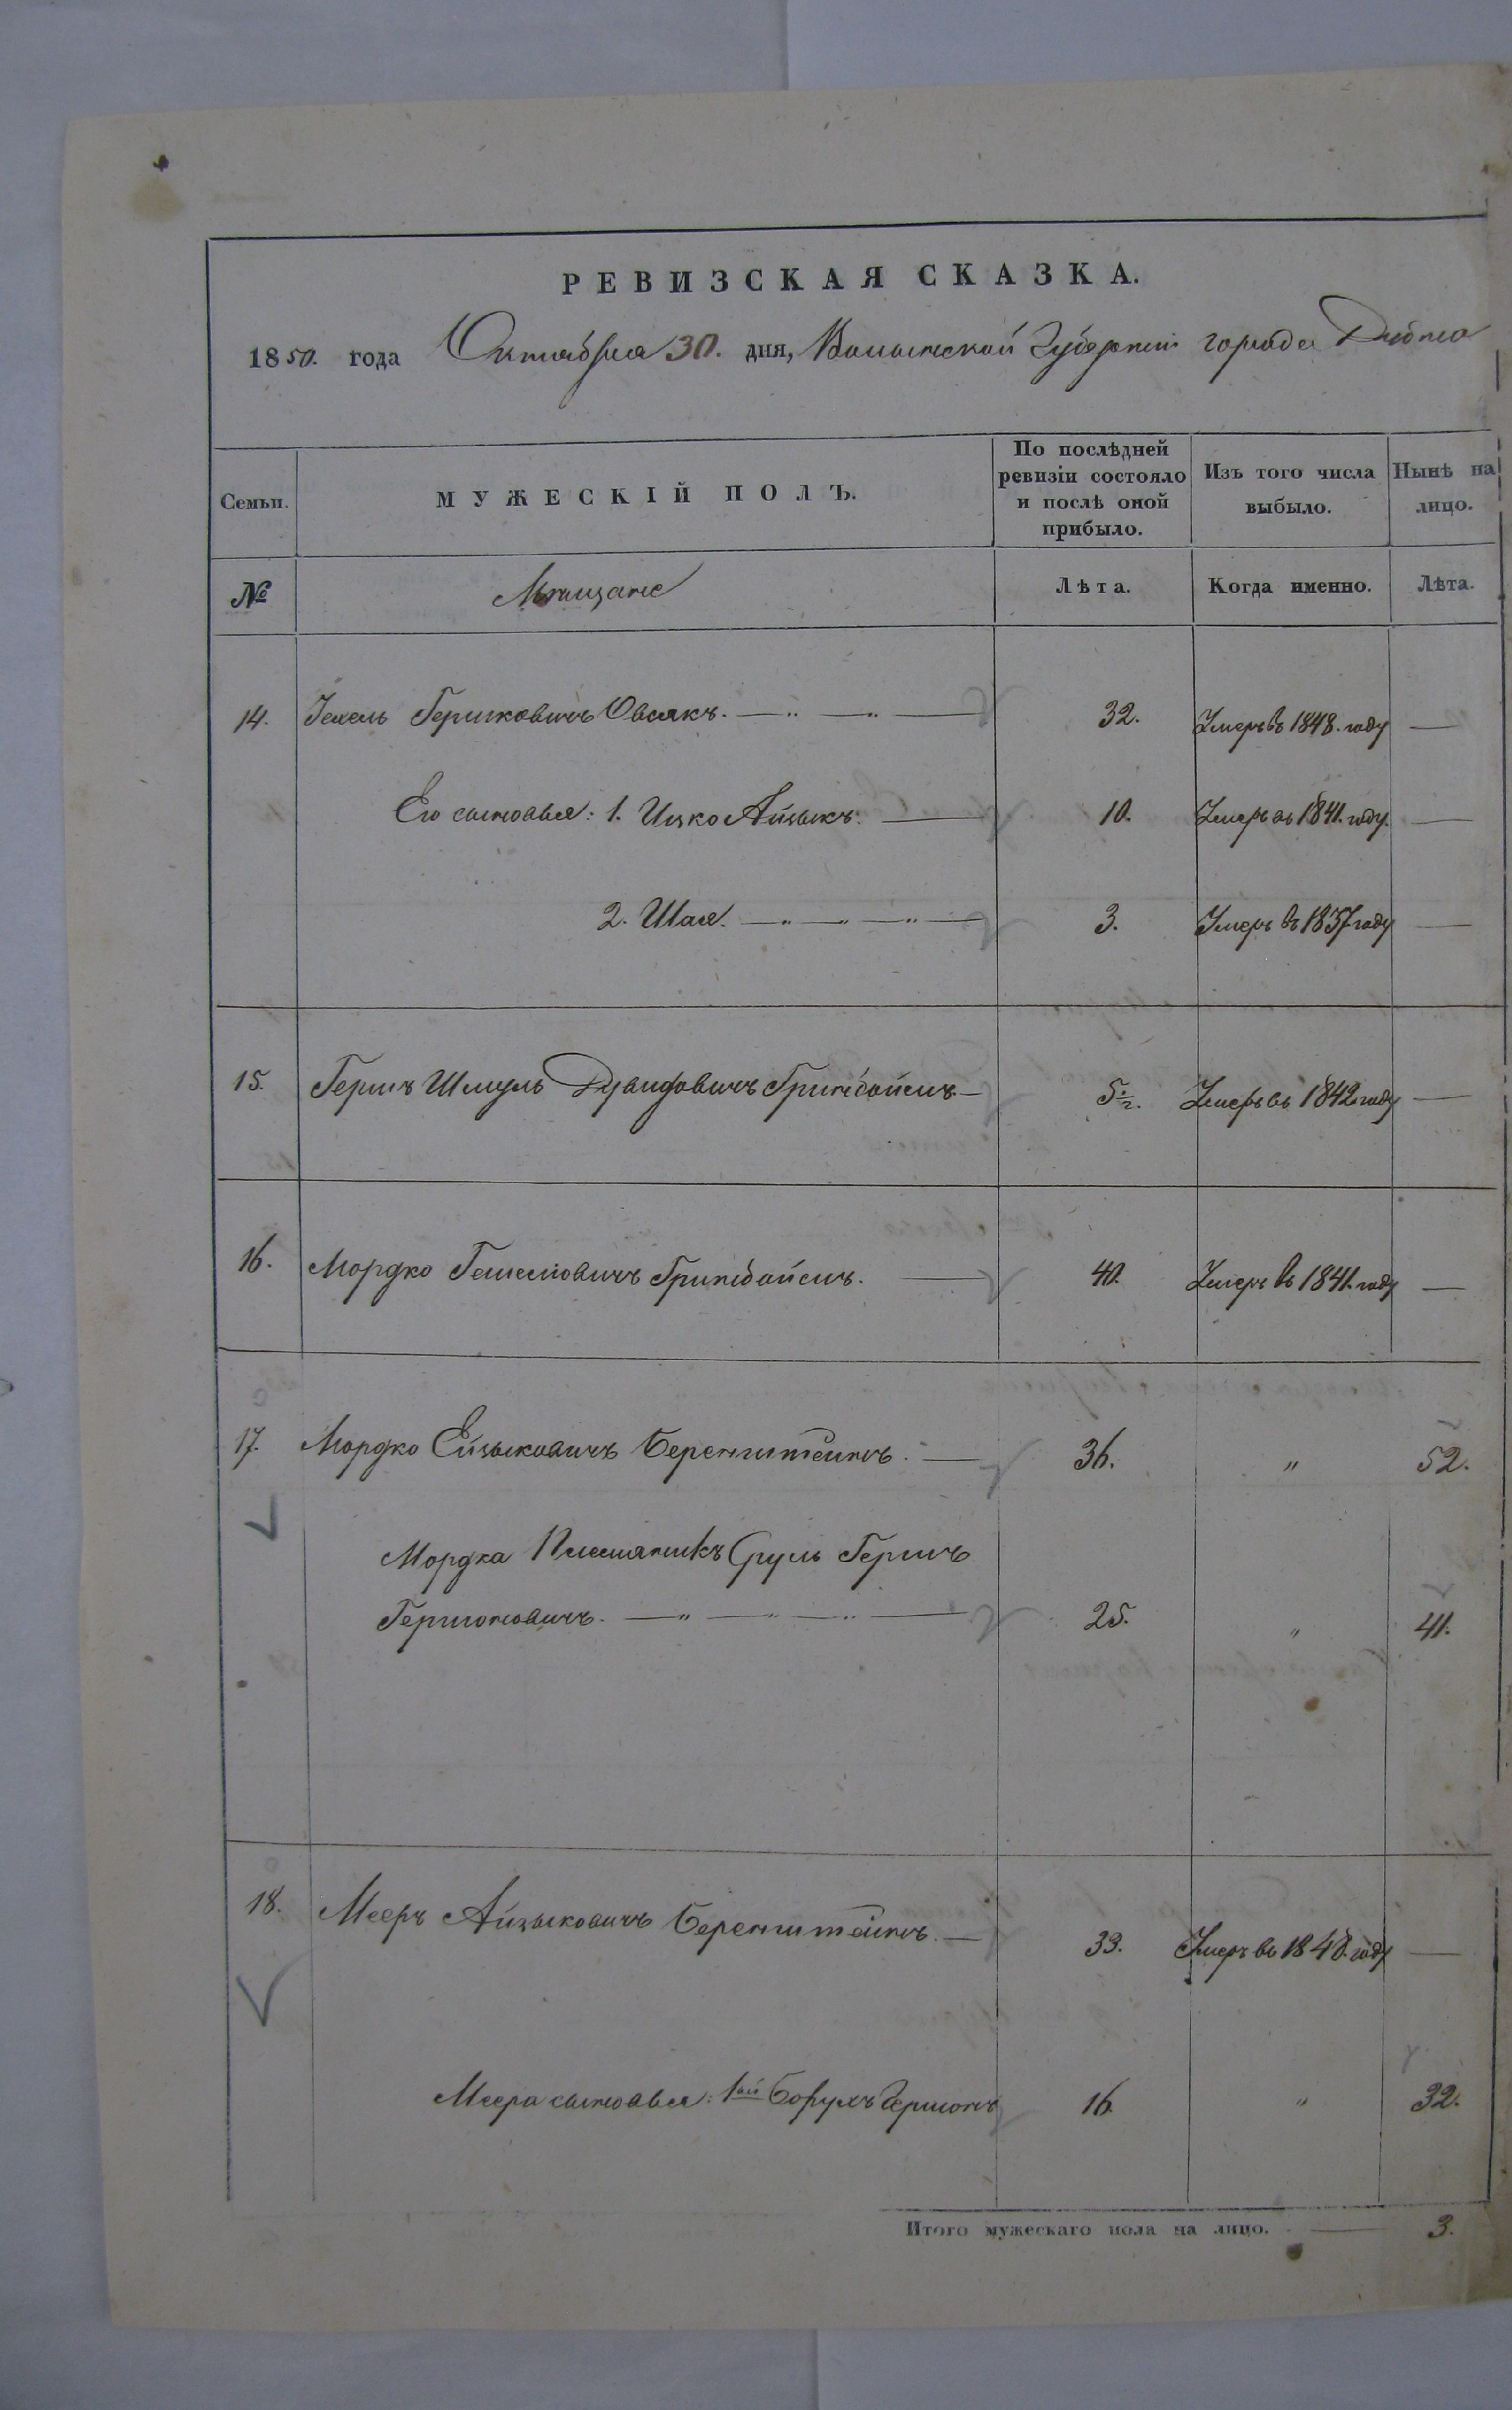 РЕВИЗСКАЯ СКАЗКА.
1850. года Октября 30. дня, Волынской Губернии города Дубно
Семьи.
МУЖЕСКІЙ ПОЛЪ.
По послѣдней ревизіи состояло и послѣ оной прибыло.
Изъ того числа выбыло.
Нынѣ на лицо.
№ Мѣщане Лѣта. Когда именно. Лѣта.
14. Гершковичъ 32. Умеръ въ 1848. году —
Его сыновья: 1. Ицко Айзыкъ. — 10. Умеръ въ 1841. году. —
2. Шая. — „ — „ — „ — 3. Умеръ въ 1837 году —
15. Гершъ Шмуль Дувидовичъ Гринбоймъ — 5 1/2. Умеръ въ 1842 году —
16. Мордко Гринбоймъ. — 40. Умеръ въ 1841. году —
17. Мордко Ейзыковичъ Беренштейнъ. — 36. „ 52.
Мордка Племянникъ Сруль Гершъ
Гершоновичъ. — „ — „ — „ — 25. „ 41.
18. Мееръ Айзыковичъ Беренштейнъ. — 33. Умеръ въ 1848. году —
Меера сыновья: 1ой Борухъ Гершонъ 16. „ 32.
Итого мужескаго пола на лицо. — 3.